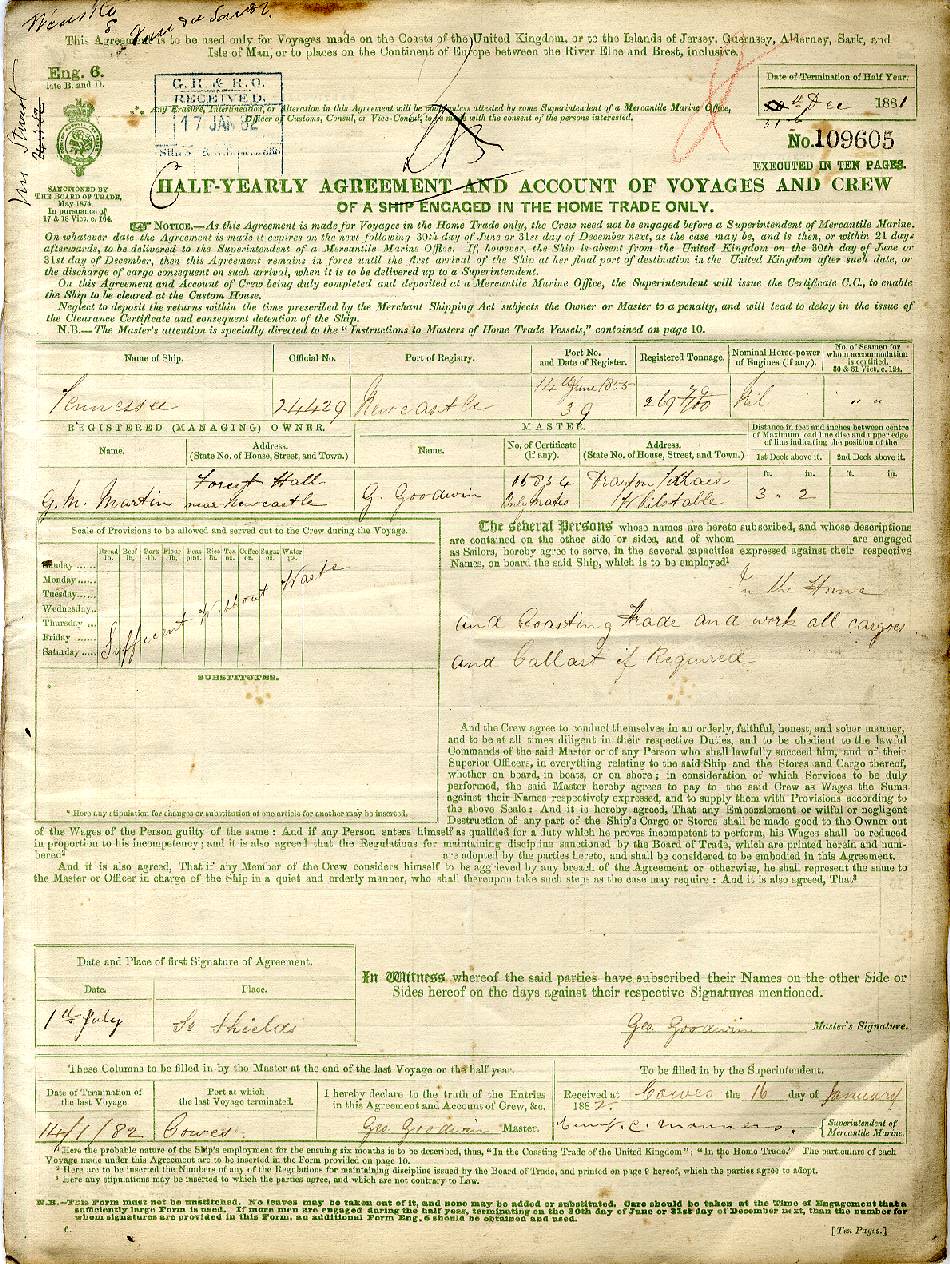 This Agreement is to be used only for Voyages made on the Coasts of the United Kingdom, or to the Islands of Jersey, Guernsey, Alderney, Sark, and
Isle of Man, or to places on the Continent of Europe between the River Elbe and Brest, inclusive.
Eng. 6.
late B. and D.
G. R. & R. O.
RECEIVED.
17 JAN 82
Any Erasure, Interlineation, or Alteration in this Agreement will be void unless attested by some Superintendent of a Mercantile Marine Office,
Officer of Customs, Consul, or Vice-Consul, to be made with the consent of the persons interested.
Date of Termination of Half Year.
Dec 1881
No. 109605
EXECUTED IN TEN PAGES.
SANCTIONED BY
THE BOARD OF TRADE,
May 1874
In pursuance of
17 & 18 Vict. c. 104.
HALF-YEARLY AGREEMENT AND ACCOUNT OF VOYAGES AND CREW
OF A SHIP ENGAGED IN THE HOME TRADE ONLY.
NOTICE.—As this Agreement is made for Voyages in the Home Trade only, the Crew need not be engaged before a Superintendent of Mercantile Marine.
On whatever date the Agreement is made it expires on the next following 30th day of June or 31st day of December next, as the case may be, and is then, or within 21 days
afterwards, to be delivered to the Superintendent of a Mercantile Marine Office. If, however, the Ship is absent from the United Kingdom on the 30th day of June or
31st day of December, then this Agreement remains in force until the first arrival of the Ship at her final port of destination in the United Kingdom after such date, or
the discharge of cargo consequent on such arrival, when it is to be delivered up to a Superintendent.
On this Agreement and Account of Crew being duly completed and deposited at a Mercantile Marine Office, the Superintendent will issue the Certificate C.C., to enable
the Ship to be cleared at the Custom House.
Neglect to deposit the returns within the time prescribed by the Merchant Shipping Act subjects the Owner or Master to a penalty, and will lead to delay in the issue of
the Clearance Certificate and consequent detention of the Ship.
N.B.—The Master's attention is specially directed to the "Instructions to Masters of Home Trade Vessels," contained on page 10.
Name of Ship. Official No. Port of Registry. Port No. and Date of Register. Registered Tonnage. Nominal Horse-power of Engines (if any). No. of Seamen for whom accommodation is certified.
Tennessee 24429 Newcastle 14 June 1855 39 269 70/100 Nil " "
REGISTERED (MANAGING) OWNER. MASTER. Distance in feet and inches between centre of Maximum load line disc and upper edge of line indicating the position of the
Name. Address. (State No. of House, Street, and Town.) Name. No. of Certificate (if any). Address. (State No. of House, Street, and Town.) 1st Deck above it. 2nd Deck above it.
G. M. Martin Forest Hall near Newcastle G. Goodwin 15834 Only Mate Whitstable 3 - 2
Scale of Provisions to be allowed and served out to the Crew during the Voyage.
Bread lb. Beef lb. Pork lb. Flour lb. Peas pint. Rice lb. Tea oz. Coffee oz. Sugar oz. Water qt.
Sunday
Monday
Tuesday
Wednesday
Thursday
Friday
Saturday
Sufficient Without Waste
SUBSTITUTES.
The several Persons whose names are hereto subscribed, and whose descriptions
are contained on the other side or sides, and of whom are engaged
as Sailors, hereby agree to serve, in the several capacities expressed against their respective
Names, on board the said Ship, which is to be employed¹
In the Home
and Coasting Trade and work all cargoes
and Ballast if Required
And the Crew agree to conduct themselves in an orderly, faithful, honest, and sober manner,
and to be at all times diligent in their respective Duties, and to be obedient to the lawful
Commands of the said Master or of any Person who shall lawfully succeed him, and of their
Superior Officers, in everything relating to the said Ship and the Stores and Cargo thereof,
whether on board, in boats, or on shore; in consideration of which Services to be duly
performed, the said Master hereby agrees to pay to the said Crew as Wages the Sums
against their Names respectively expressed, and to supply them with Provisions according to
the above Scale: And it is hereby agreed, That any Embezzlement or wilful or negligent
Destruction of any part of the Ship's Cargo or Stores shall be made good to the Owner out
* Here any stipulation for changes or substitution of one article for another may be inserted.
of the Wages of the Person guilty of the same: And if any Person enters himself as qualified for a duty which he proves incompetent to perform, his Wages shall be reduced
in proportion to his incompetency; and it is also agreed that the Regulations for maintaining discipline sanctioned by the Board of Trade, which are printed herein and num-
bered² are adopted by the parties hereto, and shall be considered to be embodied in this Agreement.
And it is also agreed, That if any Member of the Crew considers himself to be aggrieved by any breach of the Agreement or otherwise, he shall represent the same to
the Master or Officer in charge of the Ship in a quiet and orderly manner, who shall thereupon take such steps as the case may require: And it is also agreed, That³
Date and Place of first Signature of Agreement.
Date. Place.
1st July So Shields
In Witness whereof the said parties have subscribed their Names on the other Side or
Sides hereof on the days against their respective Signatures mentioned.
Geo Goodwin Master's Signature.
These Columns to be filled in by the Master at the end of the last Voyage or the half year.
Date of Termination of the last Voyage Port at which the last Voyage terminated. I hereby declare to the truth of the Entries in this Agreement and Account of Crew, &c.
14/1/82 Cowes Geo Goodwin Master.
To be filled in by the Superintendent.
Received at Cowes the 16 day of January
1882.
Superintendent of
Mercantile Marine.
¹ Here the probable nature of the Ship's employment for the ensuing six months is to be described, thus, "In the Coasting Trade of the United Kingdom" "In the Home Trade." The particulars of each
Voyage made under this Agreement are to be inserted in the Form provided on page 10.
² Here are to be inserted the Numbers of any of the Regulations for maintaining discipline issued by the Board of Trade, and printed on page 6 hereof, which the parties agree to adopt.
³ Here any stipulations may be inserted to which the parties agree, and which are not contrary to Law.
N.B.—This Form must not be unstitched. No leaves may be taken out of it, and none may be added or substituted. Care should be taken at the Time of Engagement that a
sufficiently large Form is used. If more men are engaged during the half year, terminating on the 30th day of June or 31st day of December next, than the number for
whom signatures are provided in this Form, an additional Form Eng. 6 should be obtained and used.
[Ten Pages.]